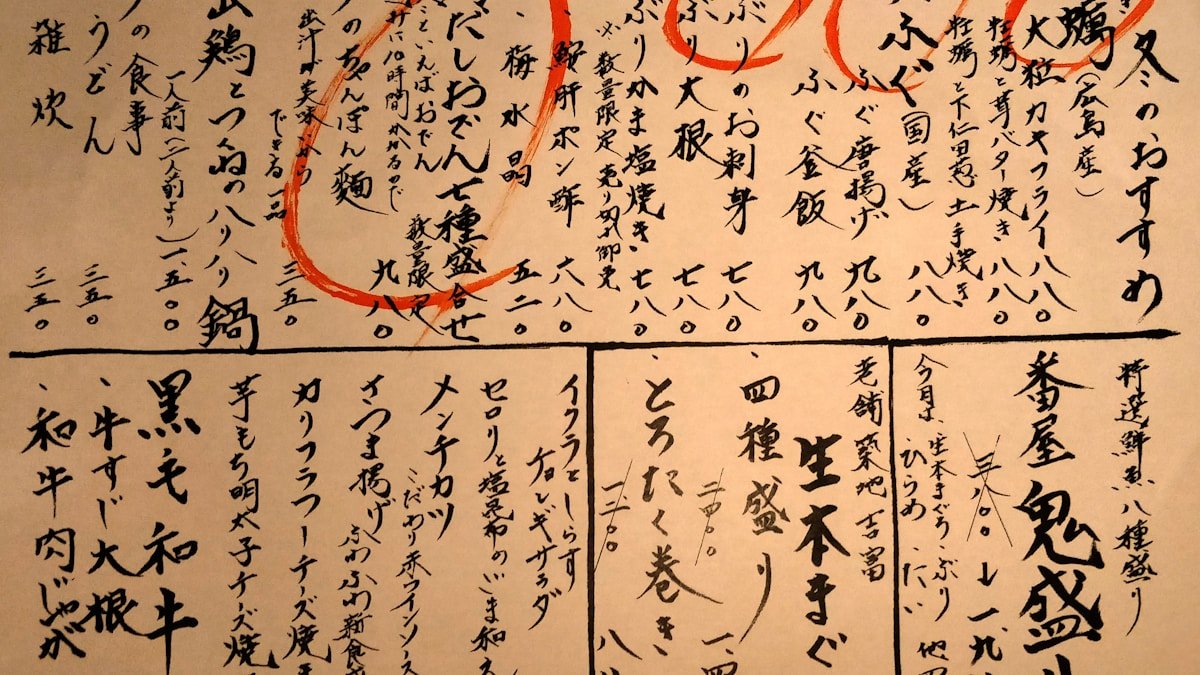 冬のおすすめ
蠣(広島産)
大粒カキフライ 八八〇
牡蠣と茸バター焼き 八八〇
牡蠣と下仁田葱土手焼き 八八〇
ふぐ(国産)
ふぐ唐揚げ 九八〇
ふぐ釜飯 九八〇
ぶりのお刺身 七八〇
ぶり大根 七八〇
ぶりかま塩焼き 七八〇
※数量限定 売り切れ御免
肝ポン酢 六八〇
、梅水晶 五二〇
だしおでん七種盛合せ
といえばおでん 数量限定
に10時間かかるので
のちゃんぽん麺 九八〇
出汁が美味から
できる一品 三五〇
鶏とつくねのハリハリ鍋
一人前(二人前より)一、五〇〇
の食事
うどん 三五〇
雑炊 三五〇
特選鮮魚八種盛り
番屋 鬼盛
三八〇〇 → 一、九
今月は、生本まぐろ、ぶり
ひらめ、たい
老舗築地吉富
生本まぐ
、四種盛り
二四〇〇 一、四
、とろたく巻き
一二〇〇 八
イクラとしらす
チョレギサラダ
セロリと塩昆布のごま和え
メンチカツ
こだわり赤ワインソース
さつま揚げ ふわふわ新食
カリフラワーチーズ焼き
芋もち明太子チーズ焼
黒毛和牛
、牛すじ大根
、和牛肉じゃが